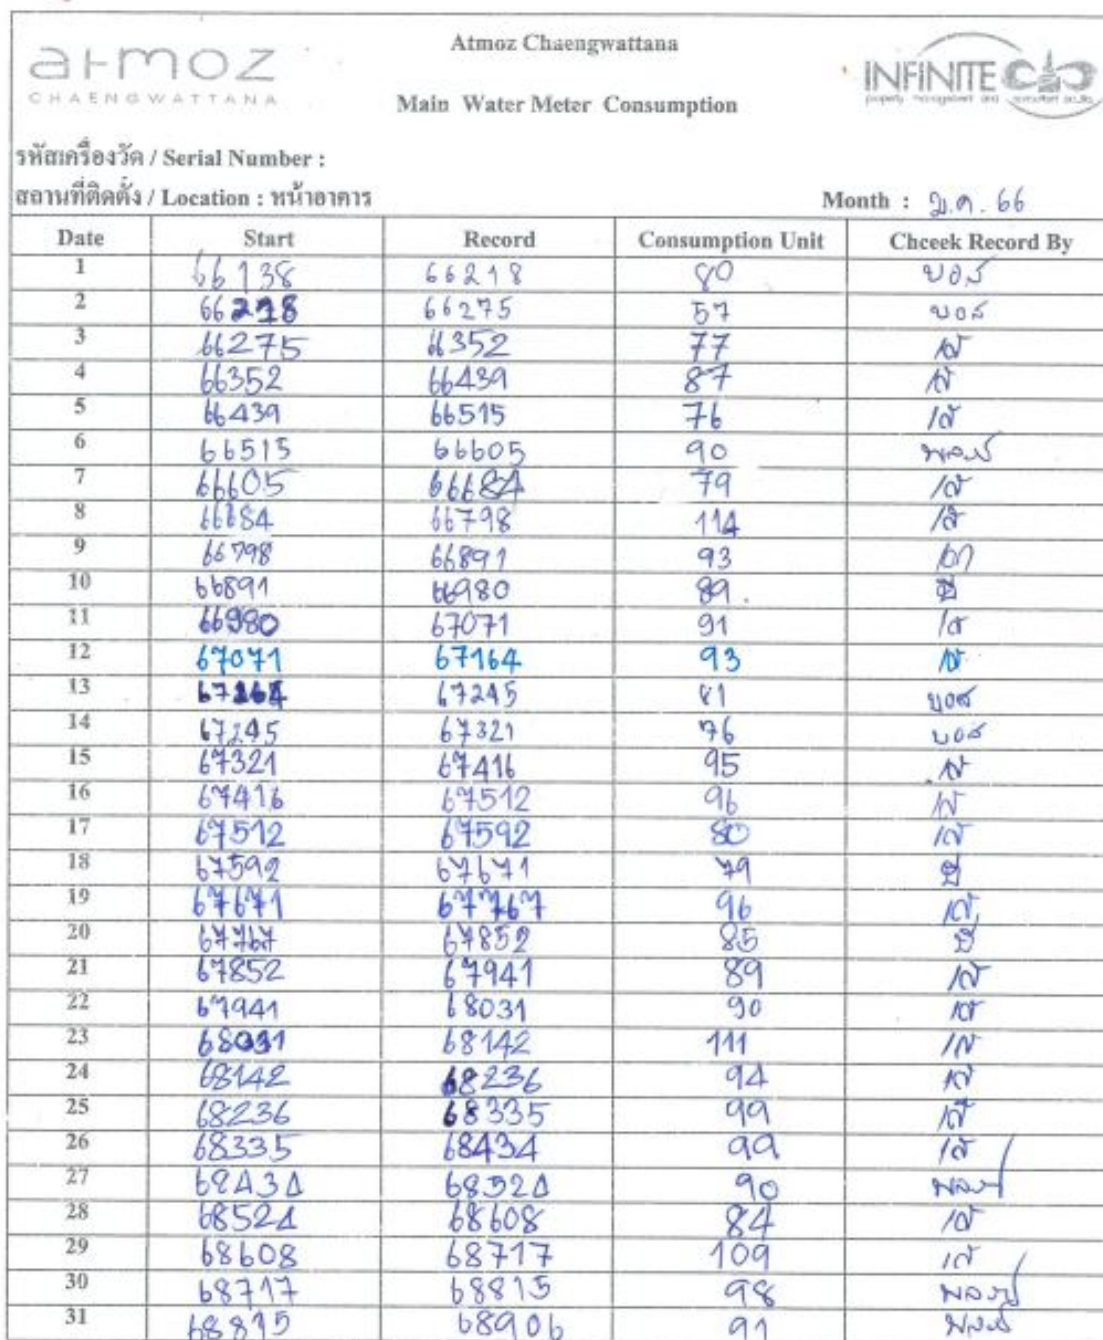 atmoz
CHAENGWATTANA
Atmoz Chaengwattana
INFINITE
Main Water Meter Consumption
รหัสเครื่องวัด / Serial Number :
สถานที่ติดตั้ง / Location : หน้าอาคาร
Month : ม.ค. 66
Date Start Record Consumption Unit Checek Record By
1 66138 66218 80 บอส
2 66218 66275 57 บอส
3 66275 66352 77
4 66352 66439 87
5 66439 66515 76
6 66515 66605 90
7 66605 66684 79
8 66684 66798 114
9 66798 66891 93
10 66891 66980 89
11 66980 67071 91
12 67071 67164 93
13 67164 67245 81 บอส
14 67245 67321 76 บอส
15 67321 67416 95
16 67416 67512 96
17 67512 67592 80
18 67592 67671 79
19 67671 67767 96
20 67767 67852 85
21 67852 67941 89
22 67941 68031 90
23 68031 68142 111
24 68142 68236 94
25 68236 68335 99
26 68335 68434 99
27 68434 68524 90
28 68524 68608 84
29 68608 68717 109
30 68717 68815 98
31 68815 68906 91